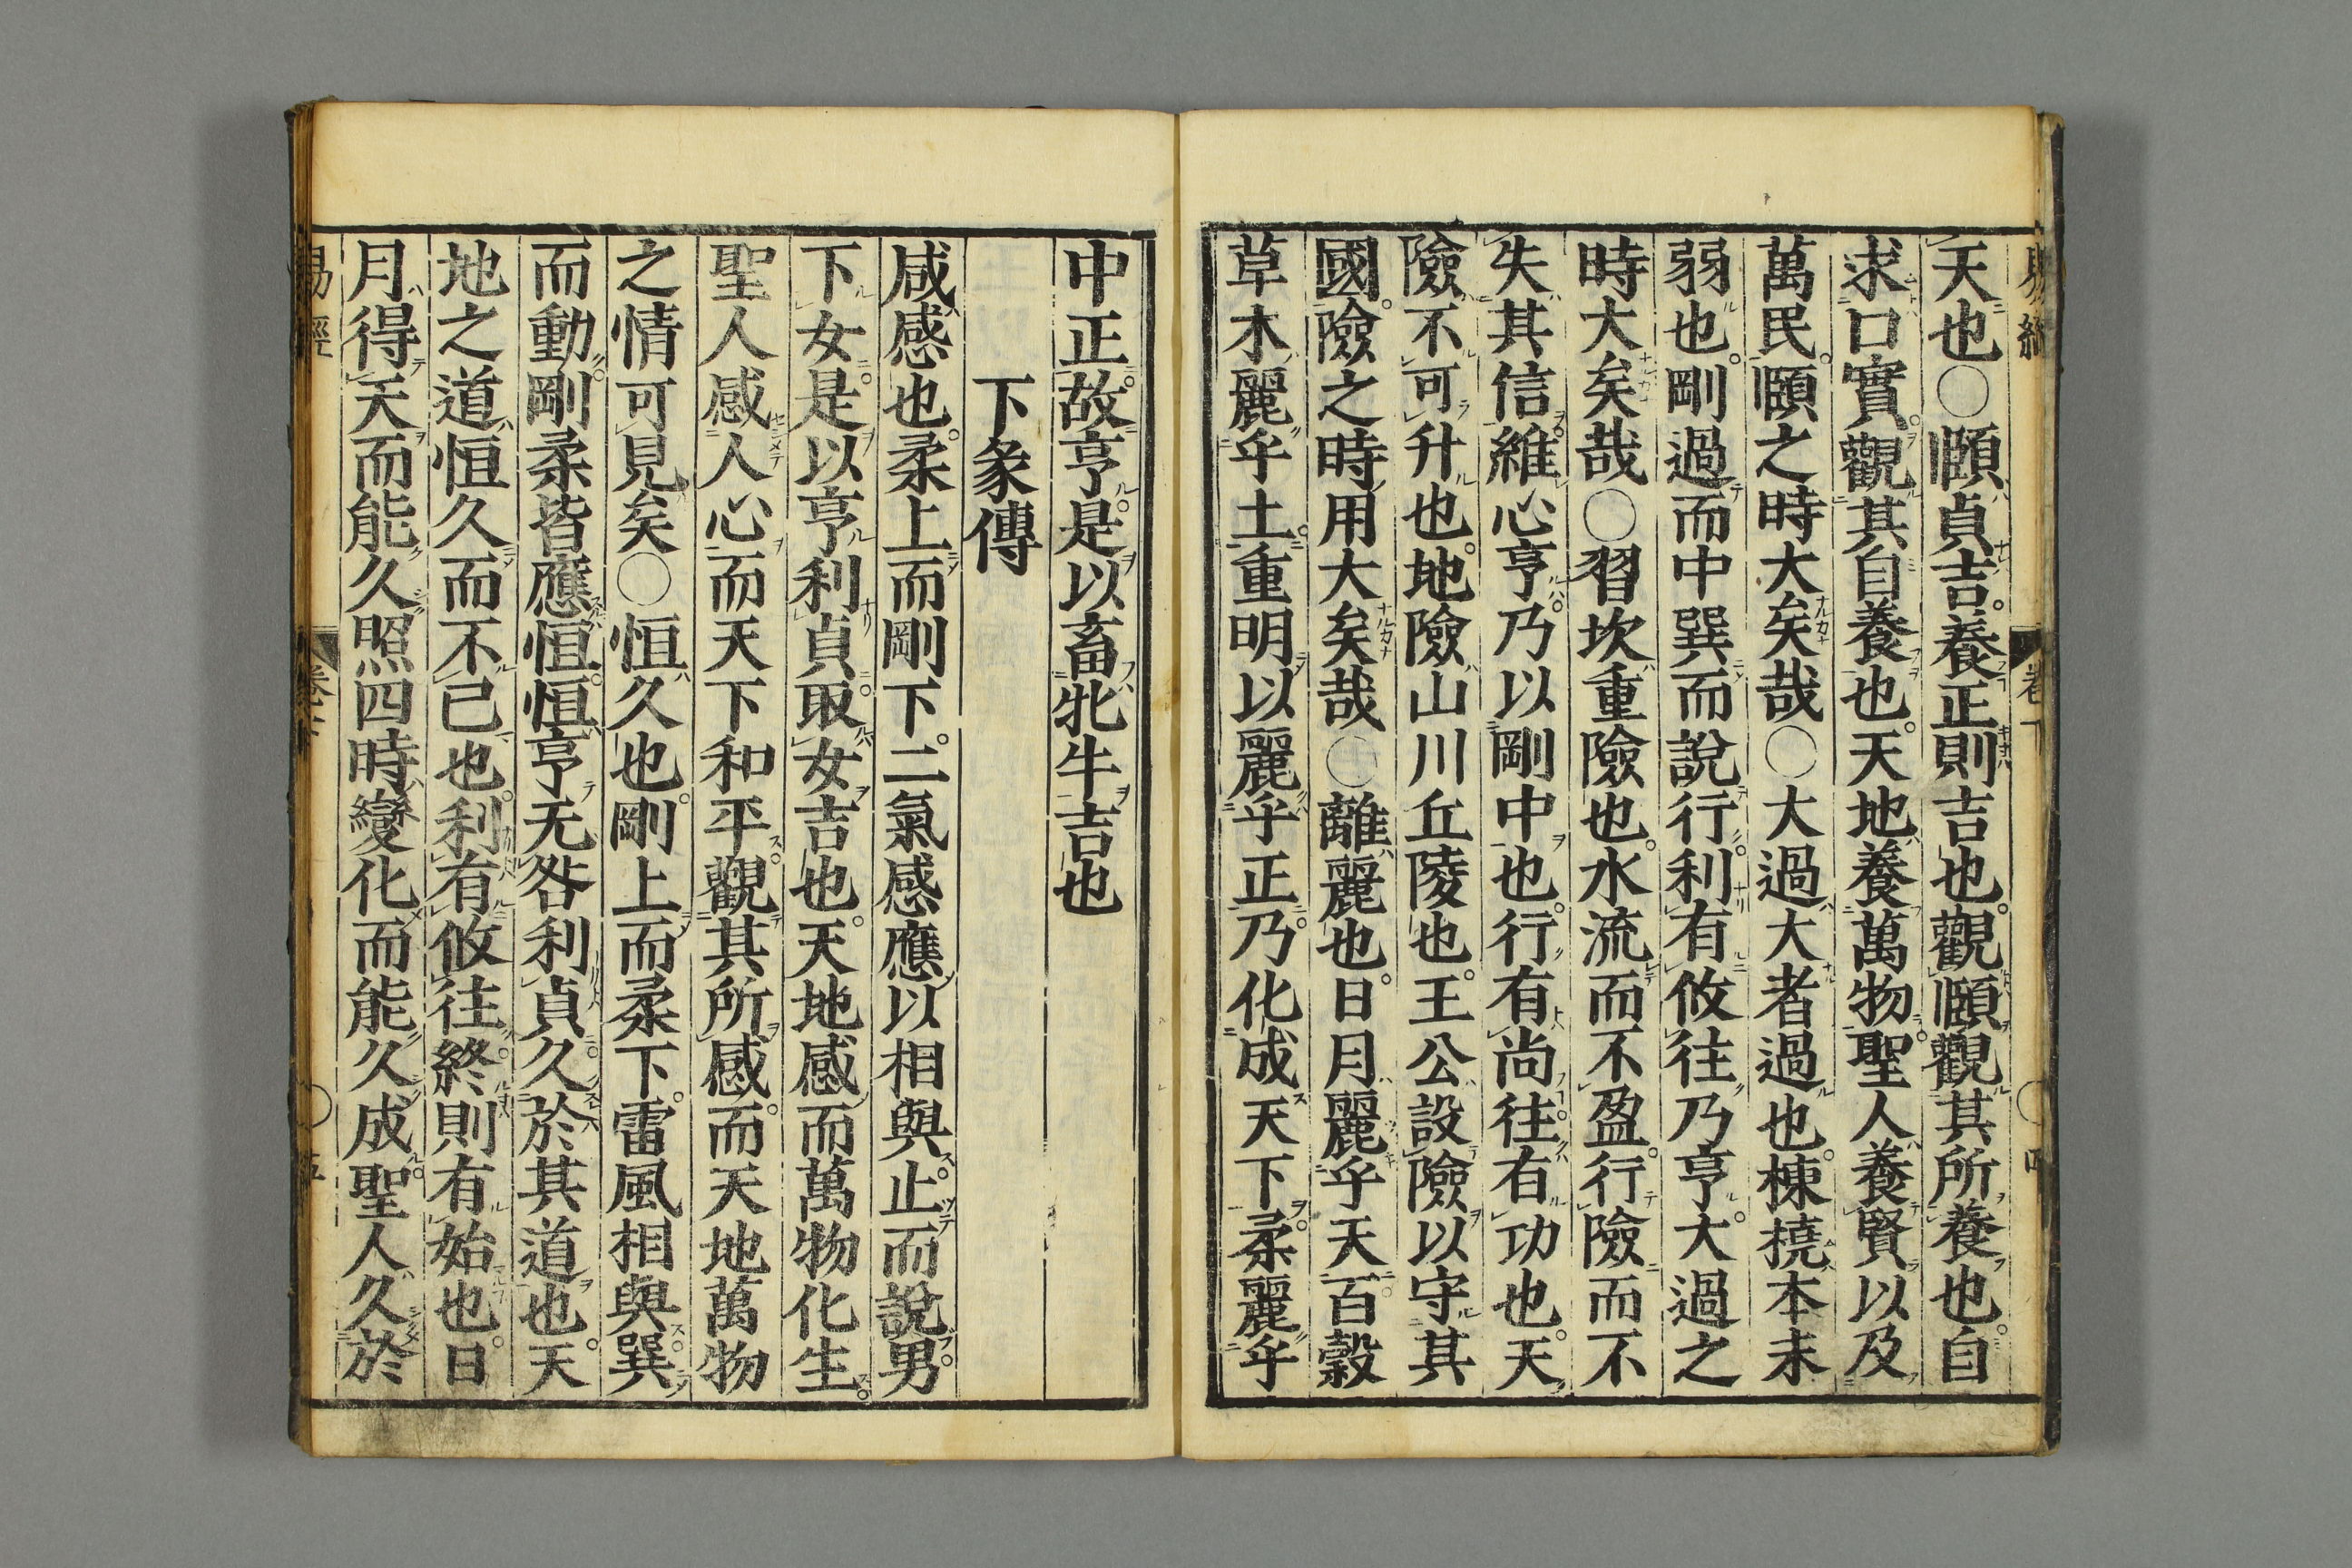 天也○頤貞吉養正則吉也觀頤觀其所養也自
求口實觀其自養也天地養萬物聖人養賢以及
萬民頤之時大矣哉○大過大者過也棟撓本末
弱也剛過而中巽而說行利有攸往乃亨大過之
時大矣哉○習坎重險也水流而不盈行險而不
失其信維心亨乃以剛中也行有尚往有功也天
險不可升也地險山川丘陵也王公設險以守其
國險之時用大矣哉○離麗也日月麗乎天百穀
草木麗乎土重明以麗乎正乃化成天下柔麗乎
中正故亨是以畜牝牛吉也
下彖傳
咸感也柔上而剛下二氣感應以相與止而說男
下女是以亨利貞取女吉也天地感而萬物化生
聖人感人心而天下和平觀其所感而天地萬物
之情可見矣○恒久也剛上而柔下雷風相與巽
而動剛柔皆應恒恒亨无咎利貞久於其道也天
地之道恒久而不已也利有攸往終則有始也日
月得天而能久照四時變化而能久成聖人久於
易經